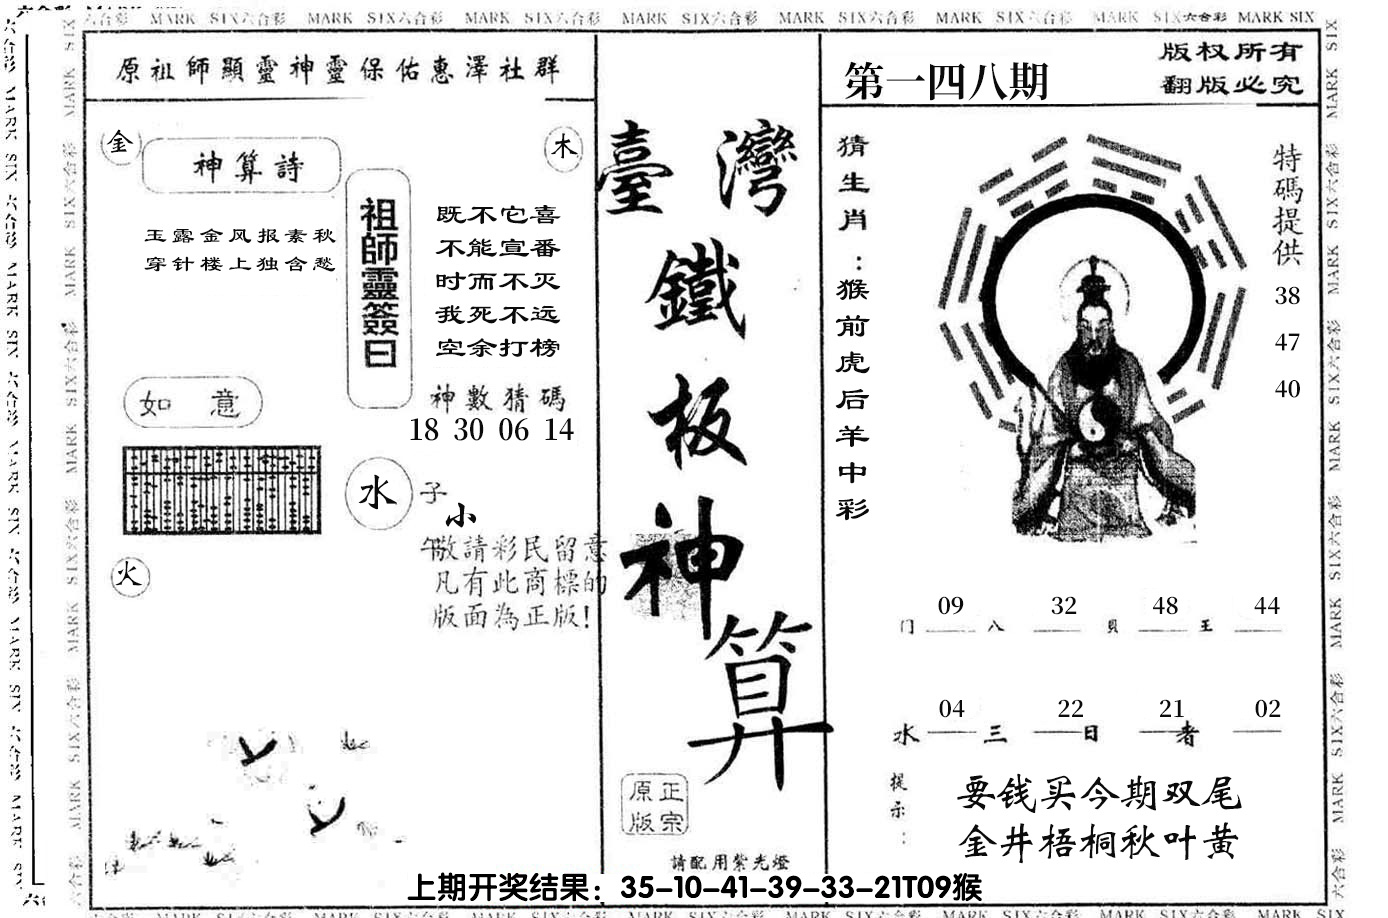 六合彩 MARK SIX六合彩 MARK SIX六合彩 MARK SIX六合彩 MARK SIX六合彩 MARK SIX六合彩 MARK SIX六合彩 MARK SIX六合彩 MARK SIX
原祖師顯靈神靈保佑惠澤社群
金
木
神算詩
玉露金风报素秋
穿针楼上独含愁
祖師靈簽曰
既不它喜
不能宣番
时而不灭
我死不远
空余打榜
如意
神數猜碼
18 30 06 14
水
子
小
午
火
敬請彩民留意
凡有此商標的
版面為正版!
臺灣
鐵
板
神
算
正宗
原版
請配用紫光燈
第一四八期
版权所有
翻版必究
猜生肖:猴前虎后羊中彩
特碼提供
38
47
40
09 32 48 44
门 八 貝 王
04 22 21 02
水 三 日 者
提示:
要钱买今期双尾
金井梧桐秋叶黄
上期开奖结果：35-10-41-39-33-21T09猴